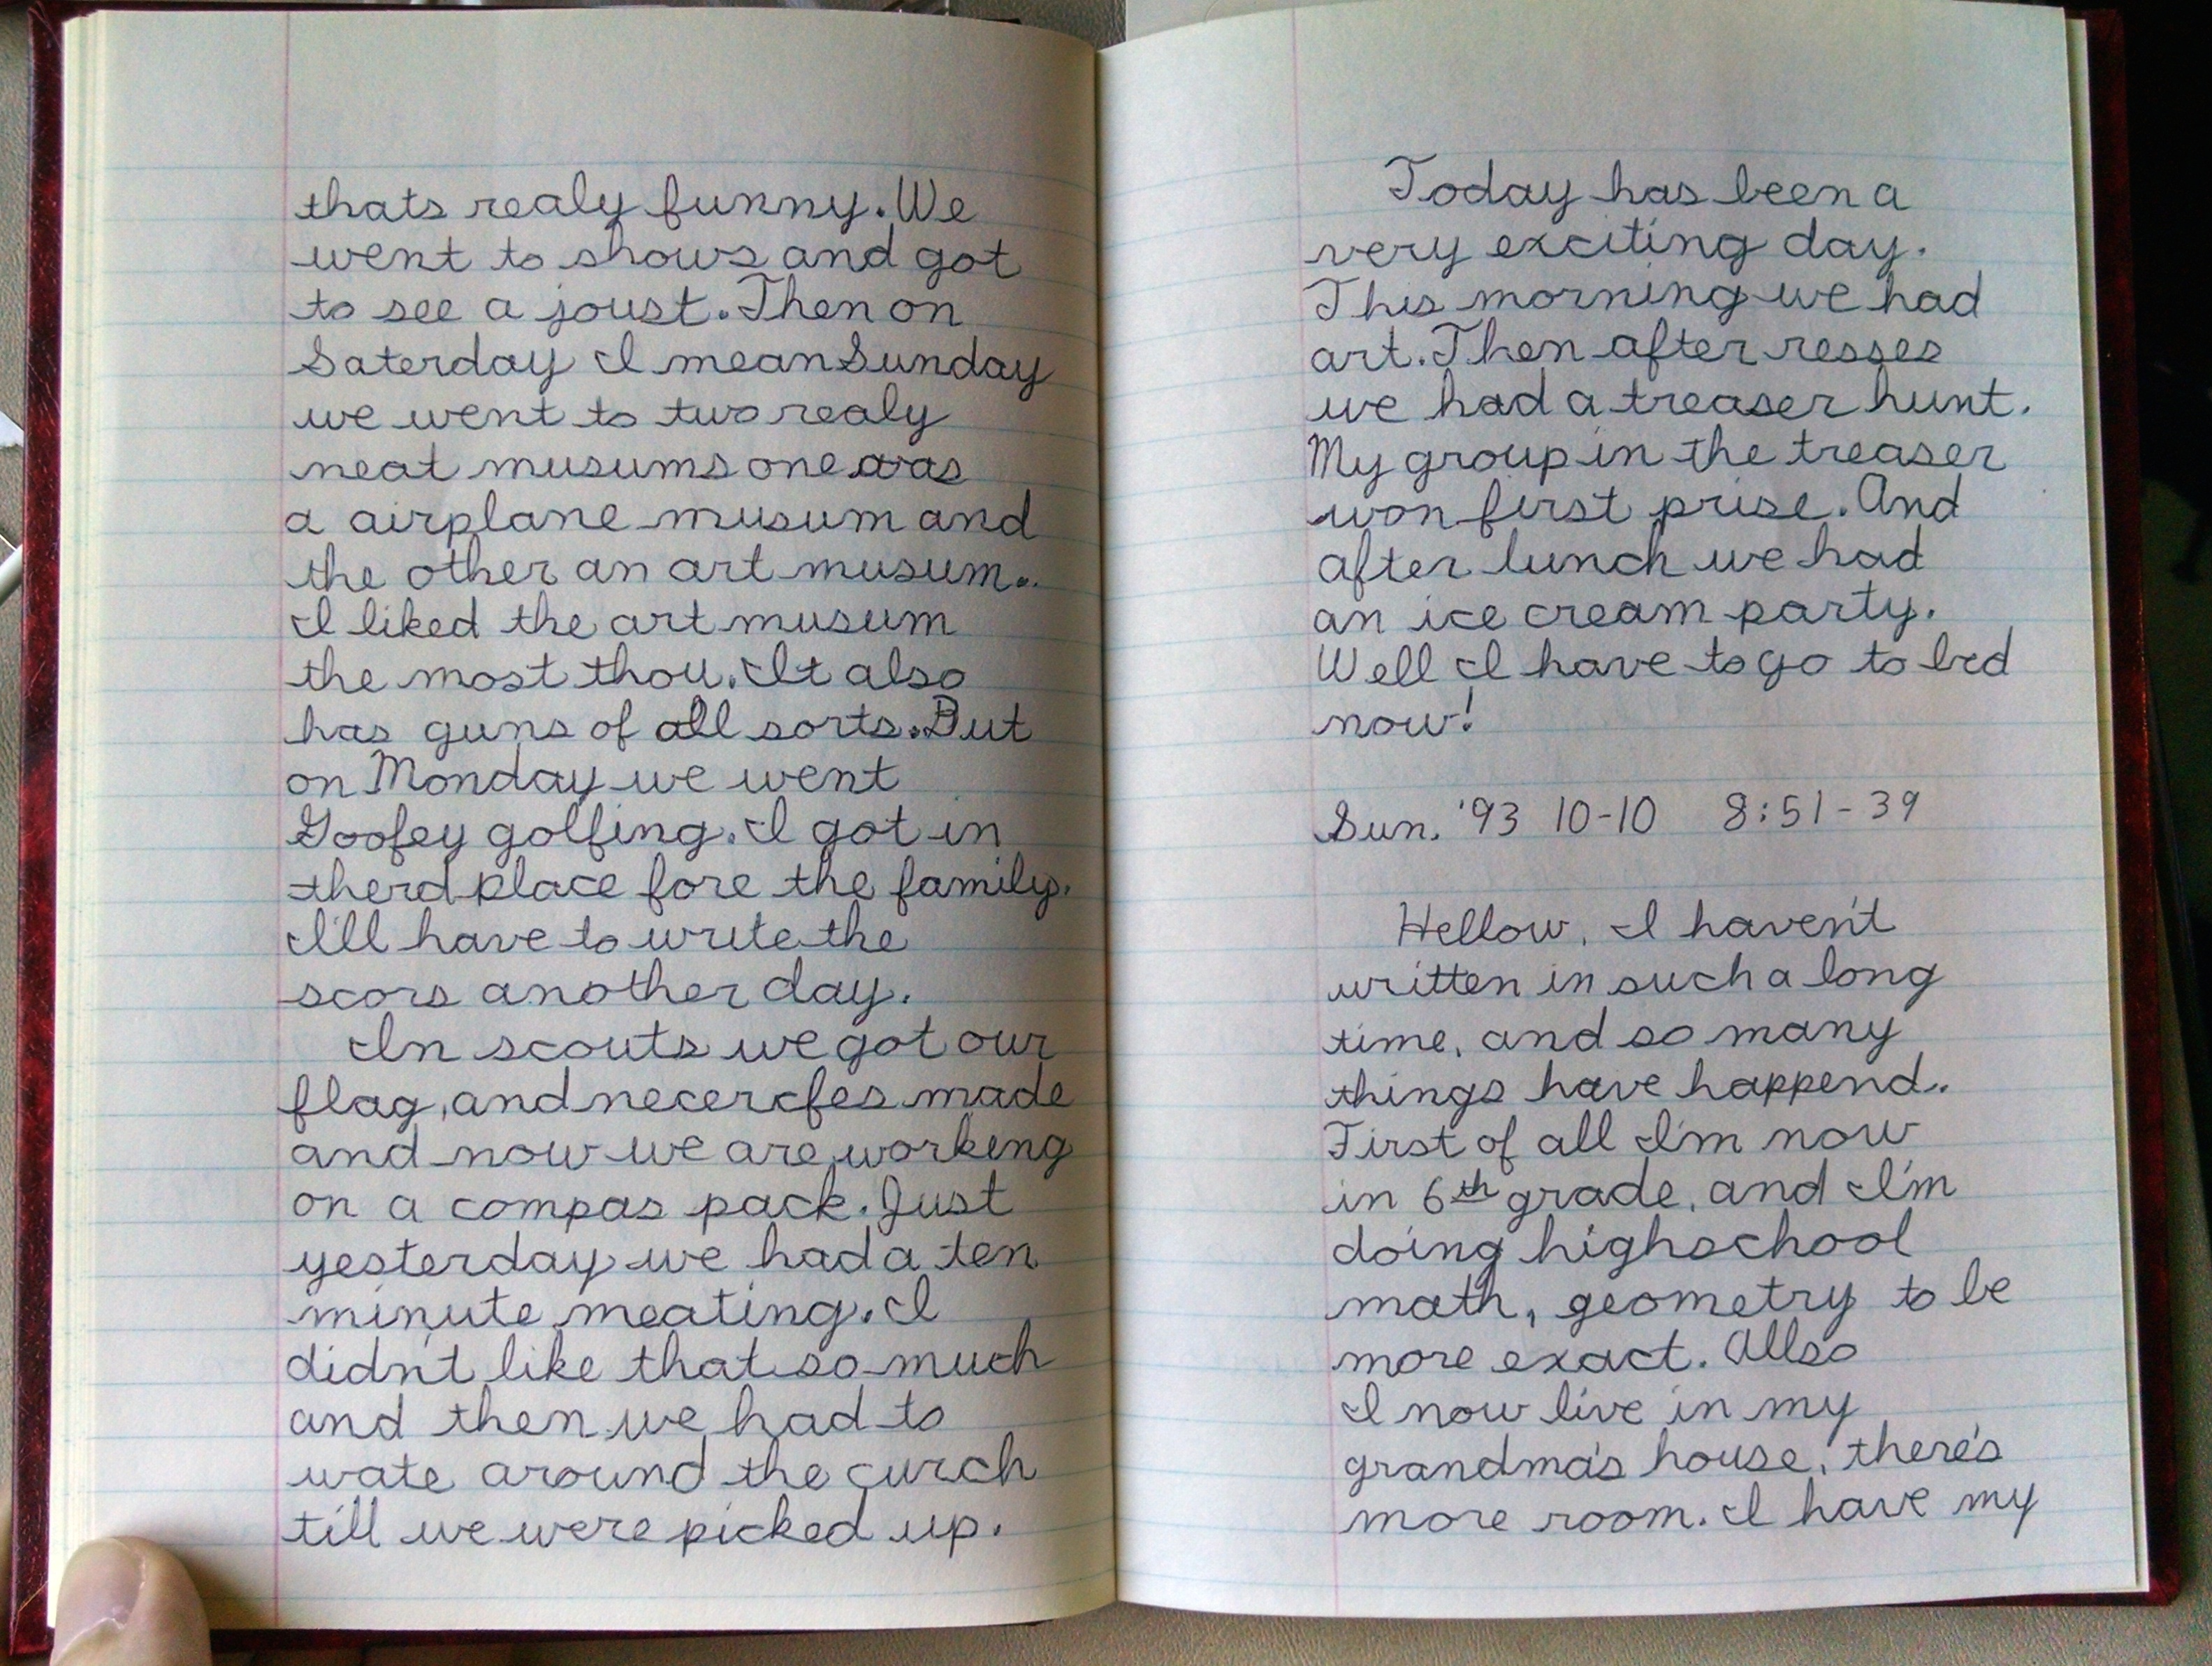 thats realy funny. We
went to shows and got
to see a joust. Then on
Saterday I mean Sunday
we went to two realy
neat musums one was
a airplane musum and
the other an art musum..
I liked the art musum
the most thou. It also
has guns of all sorts. But
on Monday we went
Goofey golfing. I got in
therd place fore the family.
I'll have to write the
scors another day.
In scouts we got our
flag, and necercfes made
and now we are working
on a compas pack. Just
yesterday we had a ten
minute meating. I
didn't like that so much
and then we had to
wate around the curch
till we were picked up.
Today has been a
very exciting day.
This morning we had
art. Then after resses
we had a treaser hunt.
My group in the treaser
won first prise. And
after lunch we had
an ice cream party.
Well I have to go to bed
now!
Sun. '93 10-10 8:51-39
Hellow, I haven't
written in such a long
time, and so many
things have happend..
First of all I'm now
in 6th grade, and I'm
doing highschool
math, geometry to be
more exact. Allso
I now live in my
grandma's house, there's
more room. I have my